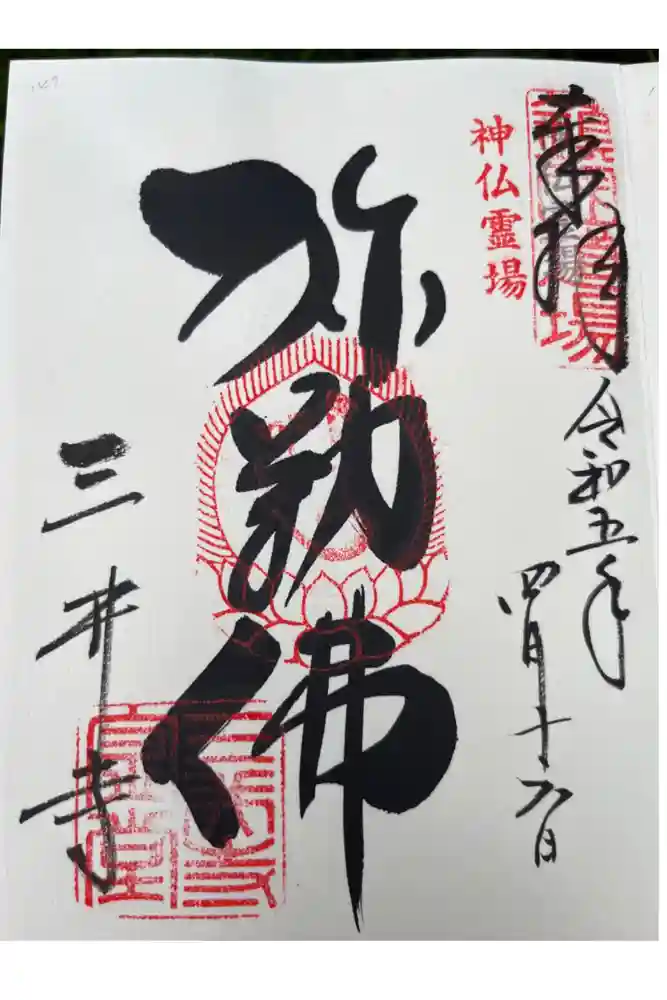 神仏霊場
奉拝
令和五年
四月十六日
弥勒佛
三井寺